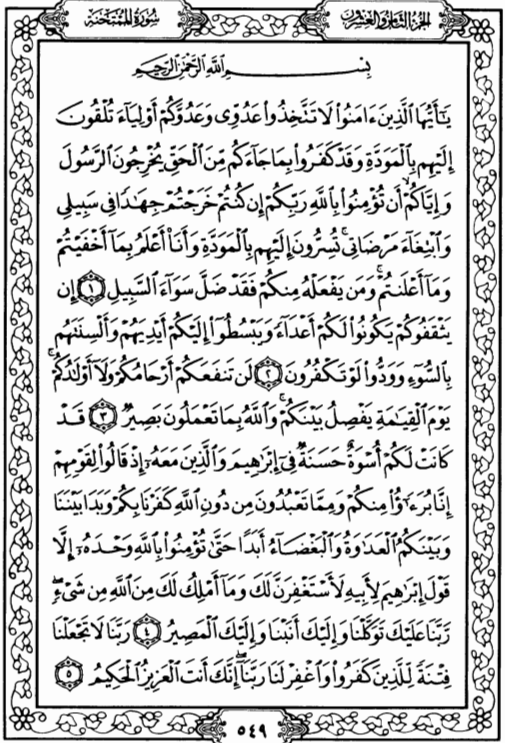 سُورَةُ الْمُمْتَحنَةِ
الجزء الثامن والعشرون
بِسْمِ ٱللَّهِ ٱلرَّحْمَٰنِ ٱلرَّحِيمِ
يَـٰٓأَيُّهَا ٱلَّذِينَ ءَامَنُوا۟ لَا تَتَّخِذُوا۟ عَدُوِّى وَعَدُوَّكُمْ أَوْلِيَآءَ تُلْقُونَ
إِلَيْهِم بِٱلْمَوَدَّةِ وَقَدْ كَفَرُوا۟ بِمَا جَآءَكُم مِّنَ ٱلْحَقِّ يُخْرِجُونَ ٱلرَّسُولَ
وَإِيَّاكُمْ ۙ أَن تُؤْمِنُوا۟ بِٱللَّهِ رَبِّكُمْ إِن كُنتُمْ خَرَجْتُمْ جِهَـٰدًا فِى سَبِيلِى
وَٱبْتِغَآءَ مَرْضَاتِى ۚ تُسِرُّونَ إِلَيْهِم بِٱلْمَوَدَّةِ وَأَنَا۠ أَعْلَمُ بِمَآ أَخْفَيْتُمْ
وَمَآ أَعْلَنتُمْ ۚ وَمَن يَفْعَلْهُ مِنكُمْ فَقَدْ ضَلَّ سَوَآءَ ٱلسَّبِيلِ ١ إِن
يَثْقَفُوكُمْ يَكُونُوا۟ لَكُمْ أَعْدَآءً وَيَبْسُطُوٓا۟ إِلَيْكُمْ أَيْدِيَهُمْ وَأَلْسِنَتَهُم
بِٱلسُّوٓءِ وَوَدُّوا۟ لَوْ تَكْفُرُونَ ٢ لَن تَنفَعَكُمْ أَرْحَامُكُمْ وَلَآ أَوْلَـٰدُكُمْ ۚ
يَوْمَ ٱلْقِيَـٰمَةِ يَفْصِلُ بَيْنَكُمْ ۚ وَٱللَّهُ بِمَا تَعْمَلُونَ بَصِيرٌ ٣ قَدْ
كَانَتْ لَكُمْ أُسْوَةٌ حَسَنَةٌ فِىٓ إِبْرَٰهِيمَ وَٱلَّذِينَ مَعَهُۥٓ إِذْ قَالُوا۟ لِقَوْمِهِمْ
إِنَّا بُرَءَٰٓؤُا۟ مِنكُمْ وَمِمَّا تَعْبُدُونَ مِن دُونِ ٱللَّهِ كَفَرْنَا بِكُمْ وَبَدَا بَيْنَنَا
وَبَيْنَكُمُ ٱلْعَدَٰوَةُ وَٱلْبَغْضَآءُ أَبَدًا حَتَّىٰ تُؤْمِنُوا۟ بِٱللَّهِ وَحْدَهُۥٓ إِلَّا
قَوْلَ إِبْرَٰهِيمَ لِأَبِيهِ لَأَسْتَغْفِرَنَّ لَكَ وَمَآ أَمْلِكُ لَكَ مِنَ ٱللَّهِ مِن شَىْءٍ ۖ
رَّبَّنَا عَلَيْكَ تَوَكَّلْنَا وَإِلَيْكَ أَنَبْنَا وَإِلَيْكَ ٱلْمَصِيرُ ٤ رَبَّنَا لَا تَجْعَلْنَا
فِتْنَةً لِّلَّذِينَ كَفَرُوا۟ وَٱغْفِرْ لَنَا رَبَّنَآ ۖ إِنَّكَ أَنتَ ٱلْعَزِيزُ ٱلْحَكِيمُ ٥
٥٤٩